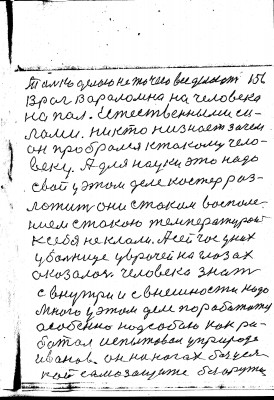 только делаю не то чего все делают 156
Враг Вараломна на человека
напал. Естественными си-
лами. никто ни знает зачем
он пробрался к такому чело-
веку. А для науки это надо
свой у этом деле костер раз-
ложить они с таком воспале-
нием с такою температурой
к себя не клали. А сейчас у них
у больнице у врачей на глазах
оказался человека знать
с внутри и с внешности надо
много у этом деле поработать
особенно над собою как ра-
ботал испытовал у природе
Иванов. он на ногах без уся-
кой самозащите без других